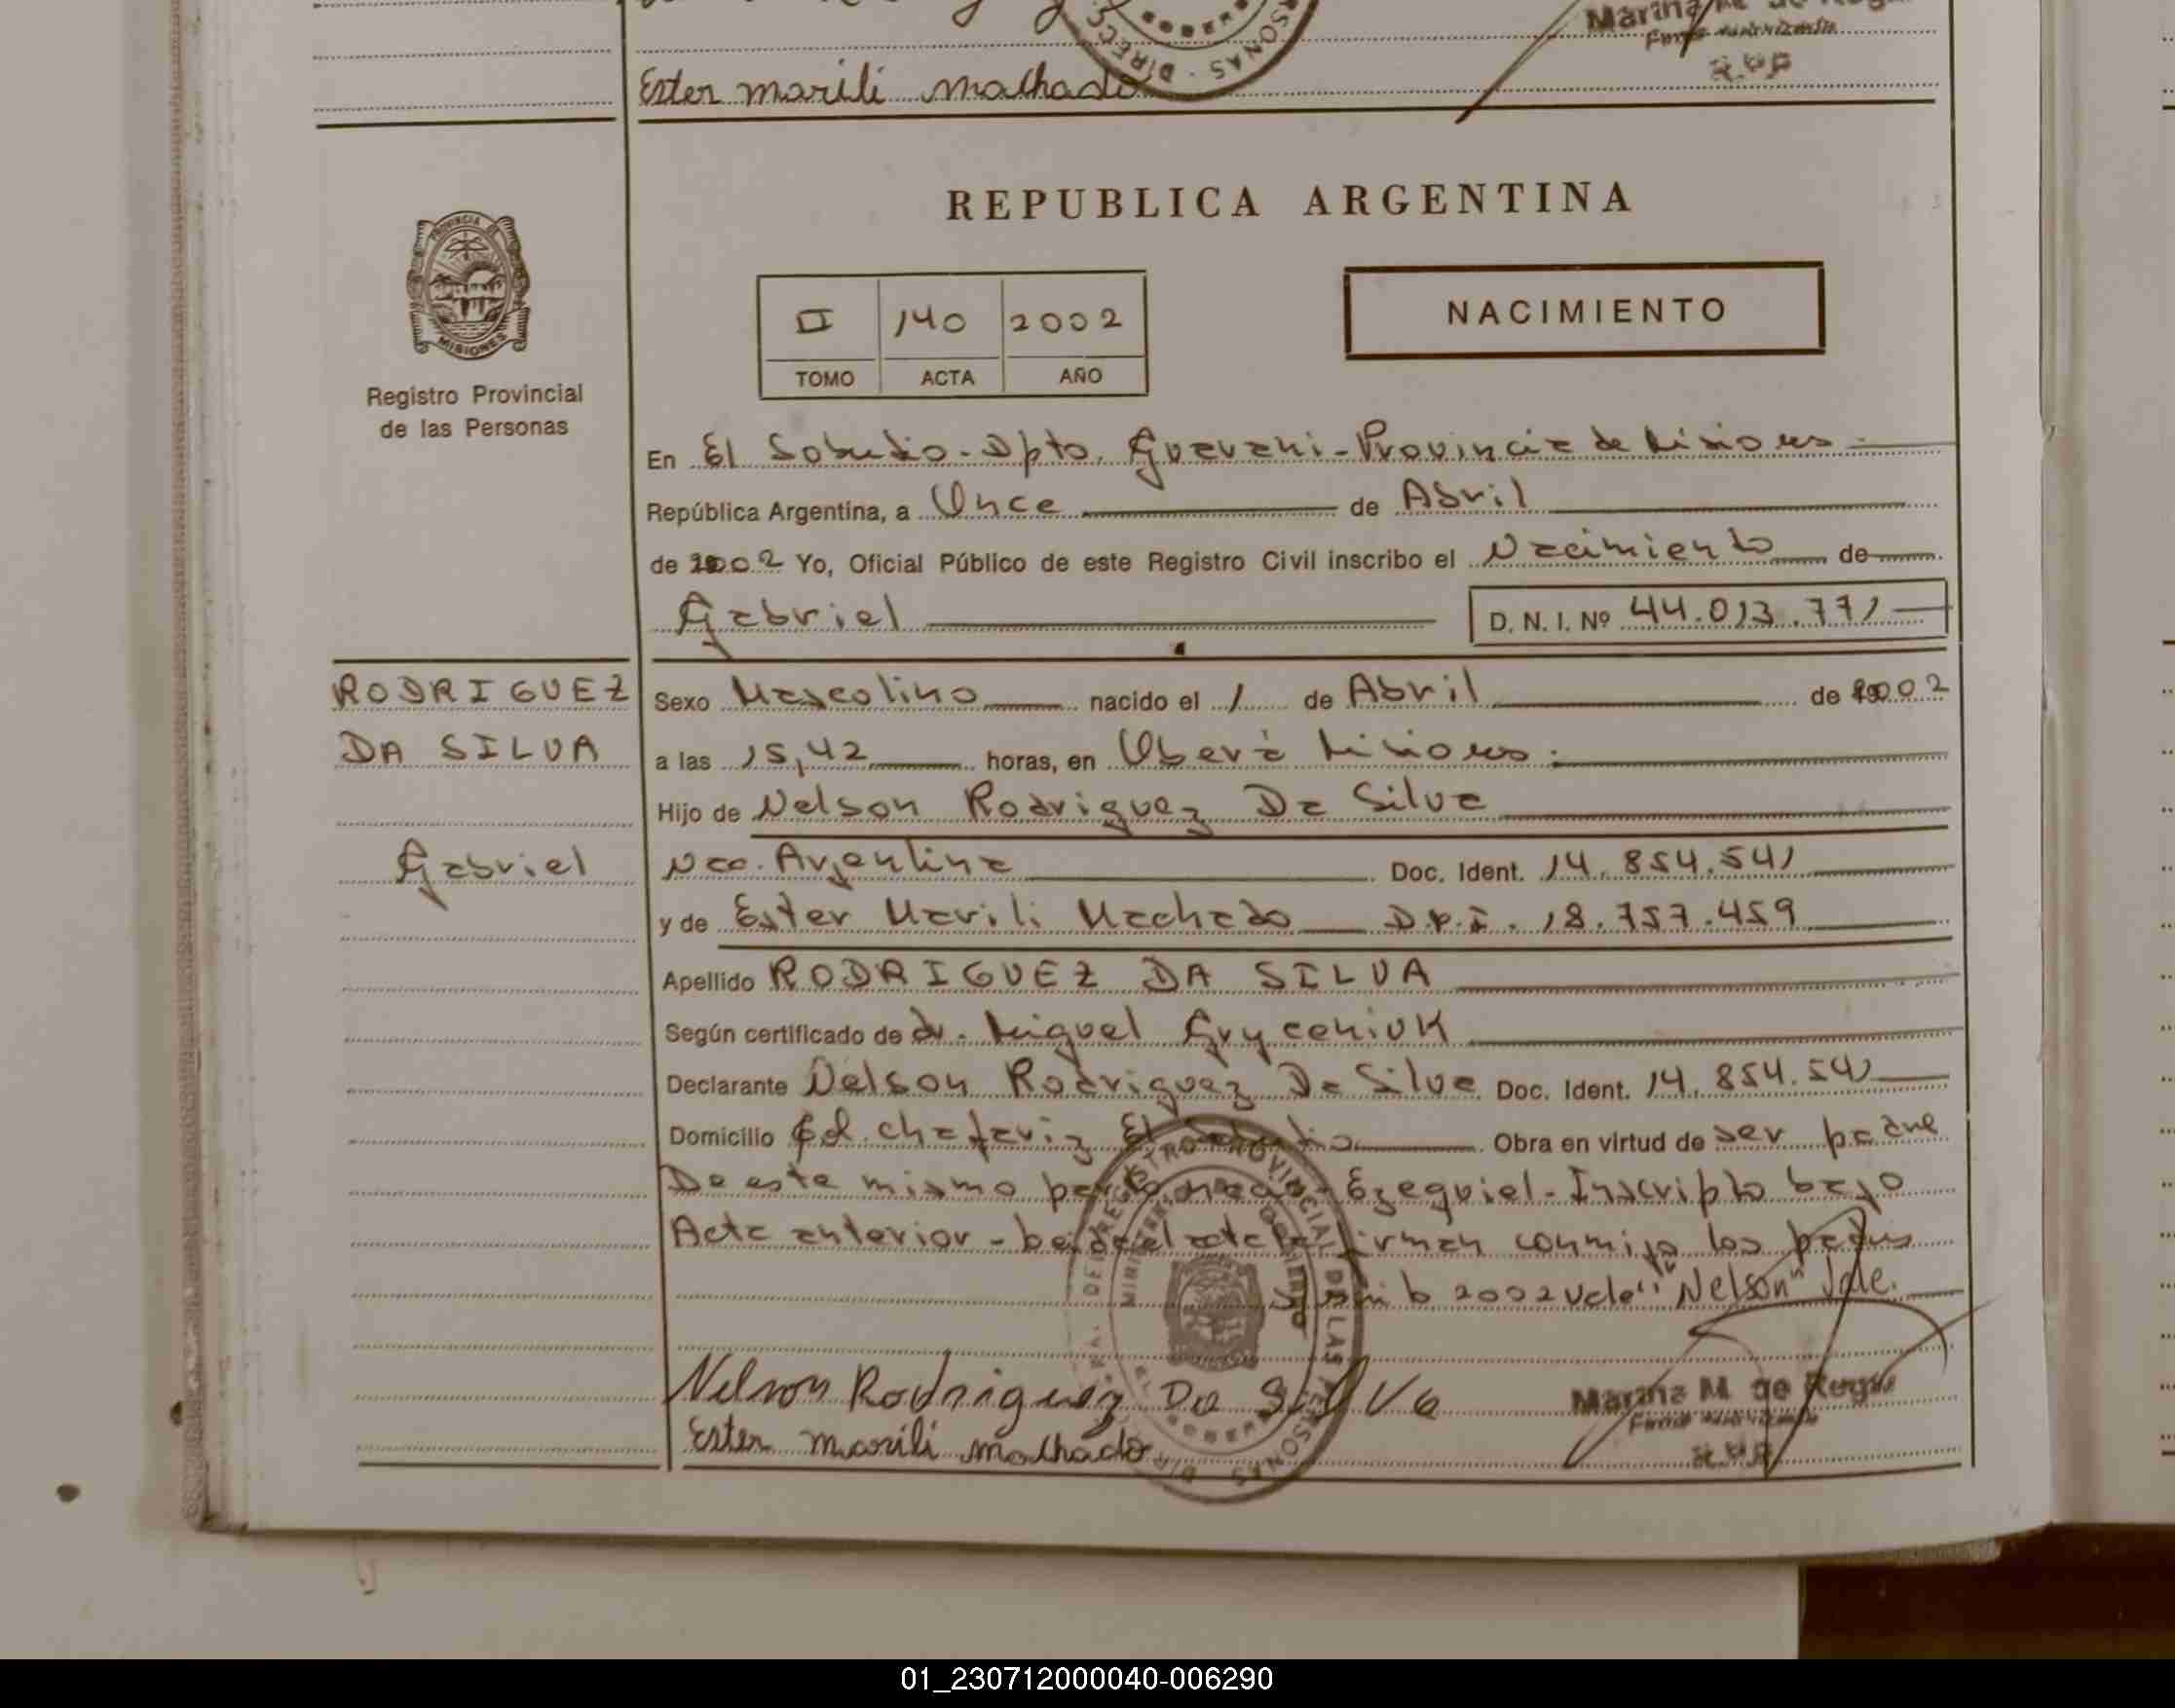 Ester marili machado
REPUBLICA ARGENTINA
PROVINCIA DE
MISIONES
Registro Provincial
de las Personas
II 140 2002
TOMO ACTA AÑO
NACIMIENTO
En El Soberbio - Dpto. Guarani - Provincia de Misiones -
República Argentina, a Once de Abril
de 2002 Yo, Oficial Público de este Registro Civil inscribo el Nacimiento de
Gabriel D. N. I. Nº 44.013.771
RODRIGUEZ
DA SILVA
Gabriel
Sexo Masculino nacido el 1 de Abril de 2002
a las 15,42 horas, en Oberá Misiones.
Hijo de Nelson Rodriguez Da Silva
Nac. Argentina Doc. Ident. 14.854.541
y de Ester Marili Machado D.N.I. 18.757.459
Apellido RODRIGUEZ DA SILVA
Según certificado de dr. Miguel Gryceniuk
Declarante Nelson Rodriguez Da Silva Doc. Ident. 14.854.541
Domicilio Col. chafariz El Soberbio Obra en virtud de ser padre
De este mismo parto nació Ezequiel - Inscripto bajo
Acta anterior - leida el acta firman conmigo los padres
2002 Vale "Nelson" Vale.
Nelson Rodriguez Da Silva
Ester marili machado
Marina M. de
01_230712000040-006290